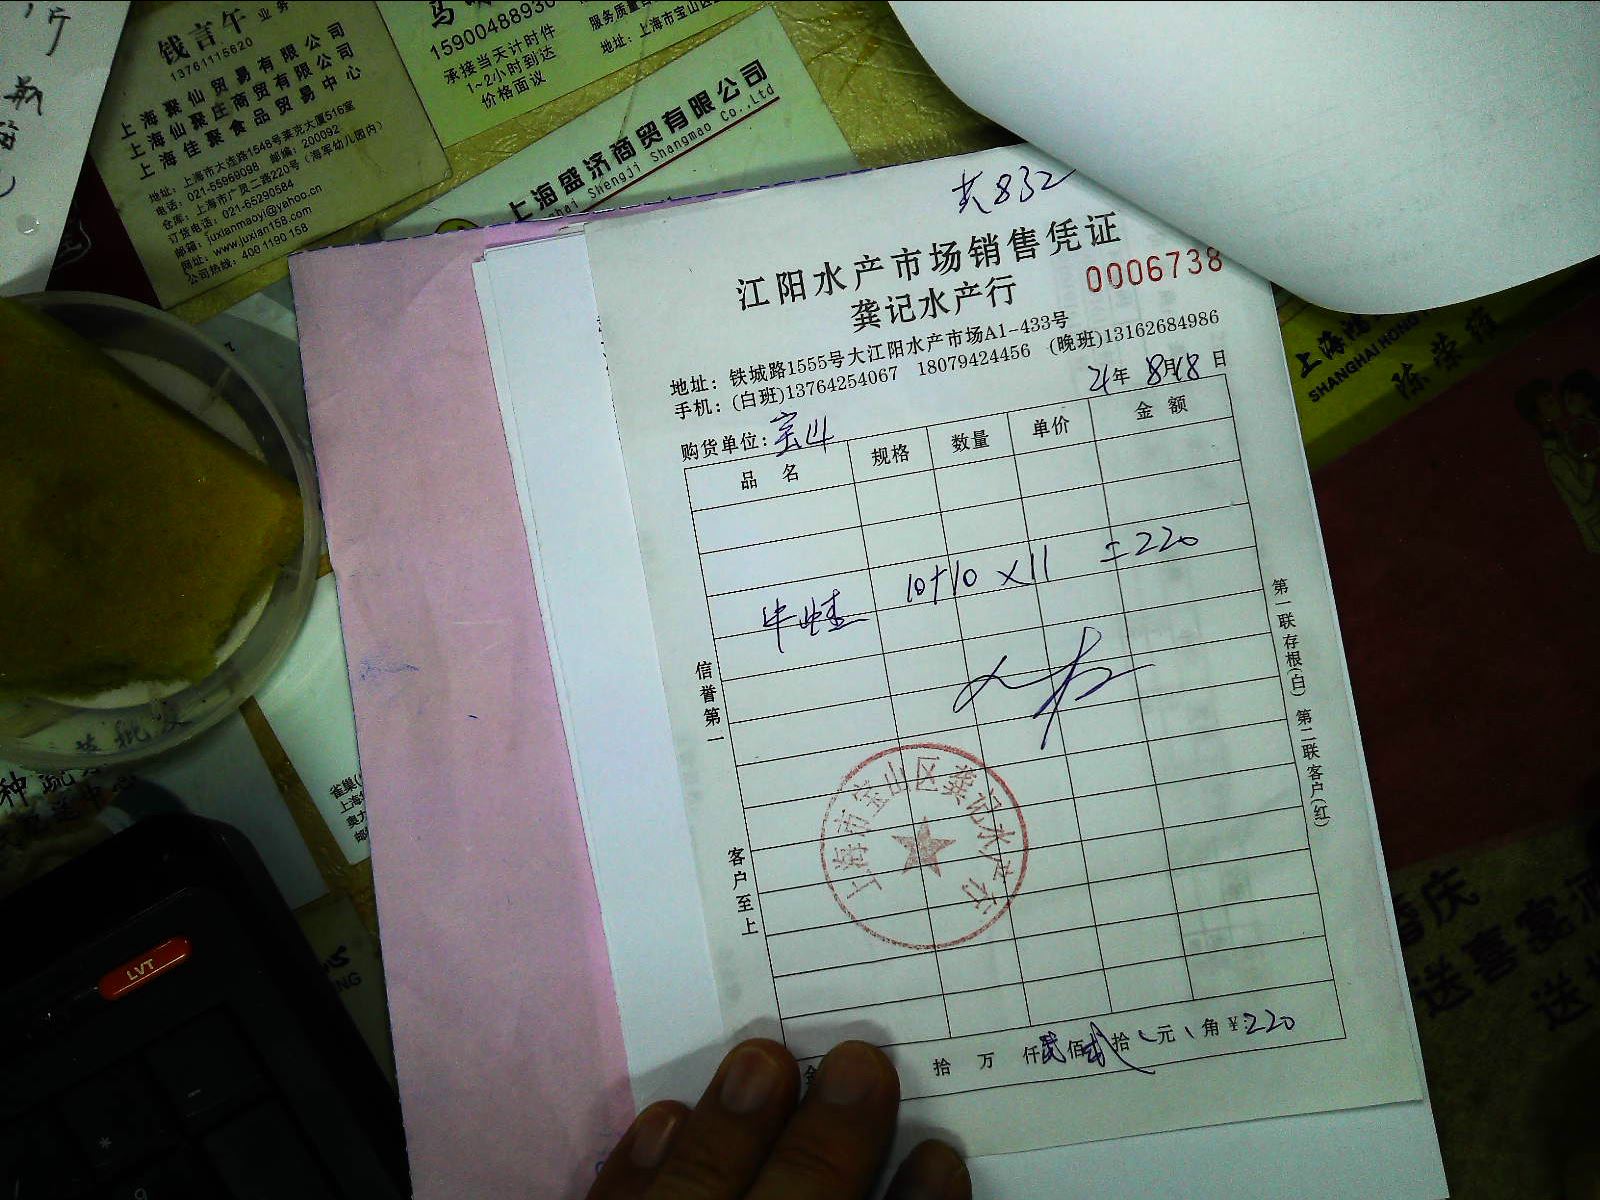 钱言午 业务
13761115620
上海聚仙贸易有限公司
上海仙聚庄商贸有限公司
上海佳聚食品贸易中心
地址：上海市大连路1548号莱克大厦516室
电话：021-55969098 邮编：200092
仓库：上海市广灵二路220号（海军幼儿园内）
订货电话：021-65290584
邮箱：juxianmaoyi@yahoo.cn
网址：www.juxian158.com
公司热线：400 1190 158
承接当天计时件
1~2小时到达
价格面议
地址：上海市宝山区
上海盛济商贸有限公司
hai Shengji Shangmao Co.,Ltd
共832
江阳水产市场销售凭证
龚记水产行
0006738
地址：铁城路1555号大江阳水产市场A1-433号
手机：(白班)13764254067 18079424456 (晚班)13162684986
21年 8月18日
购货单位：宝山
品名 规格 数量 单价 金额
牛蛙 10+10 ×11 =220
信誉第一
客户至上
第一联存根(白) 第二联客户(红)
上海市宝山区龚记水产行
金 拾 万 仟贰佰贰拾 元 角 ¥:220
SHANGHAI HONG
陈荣
LVT
婚庆
送喜宴酒
送